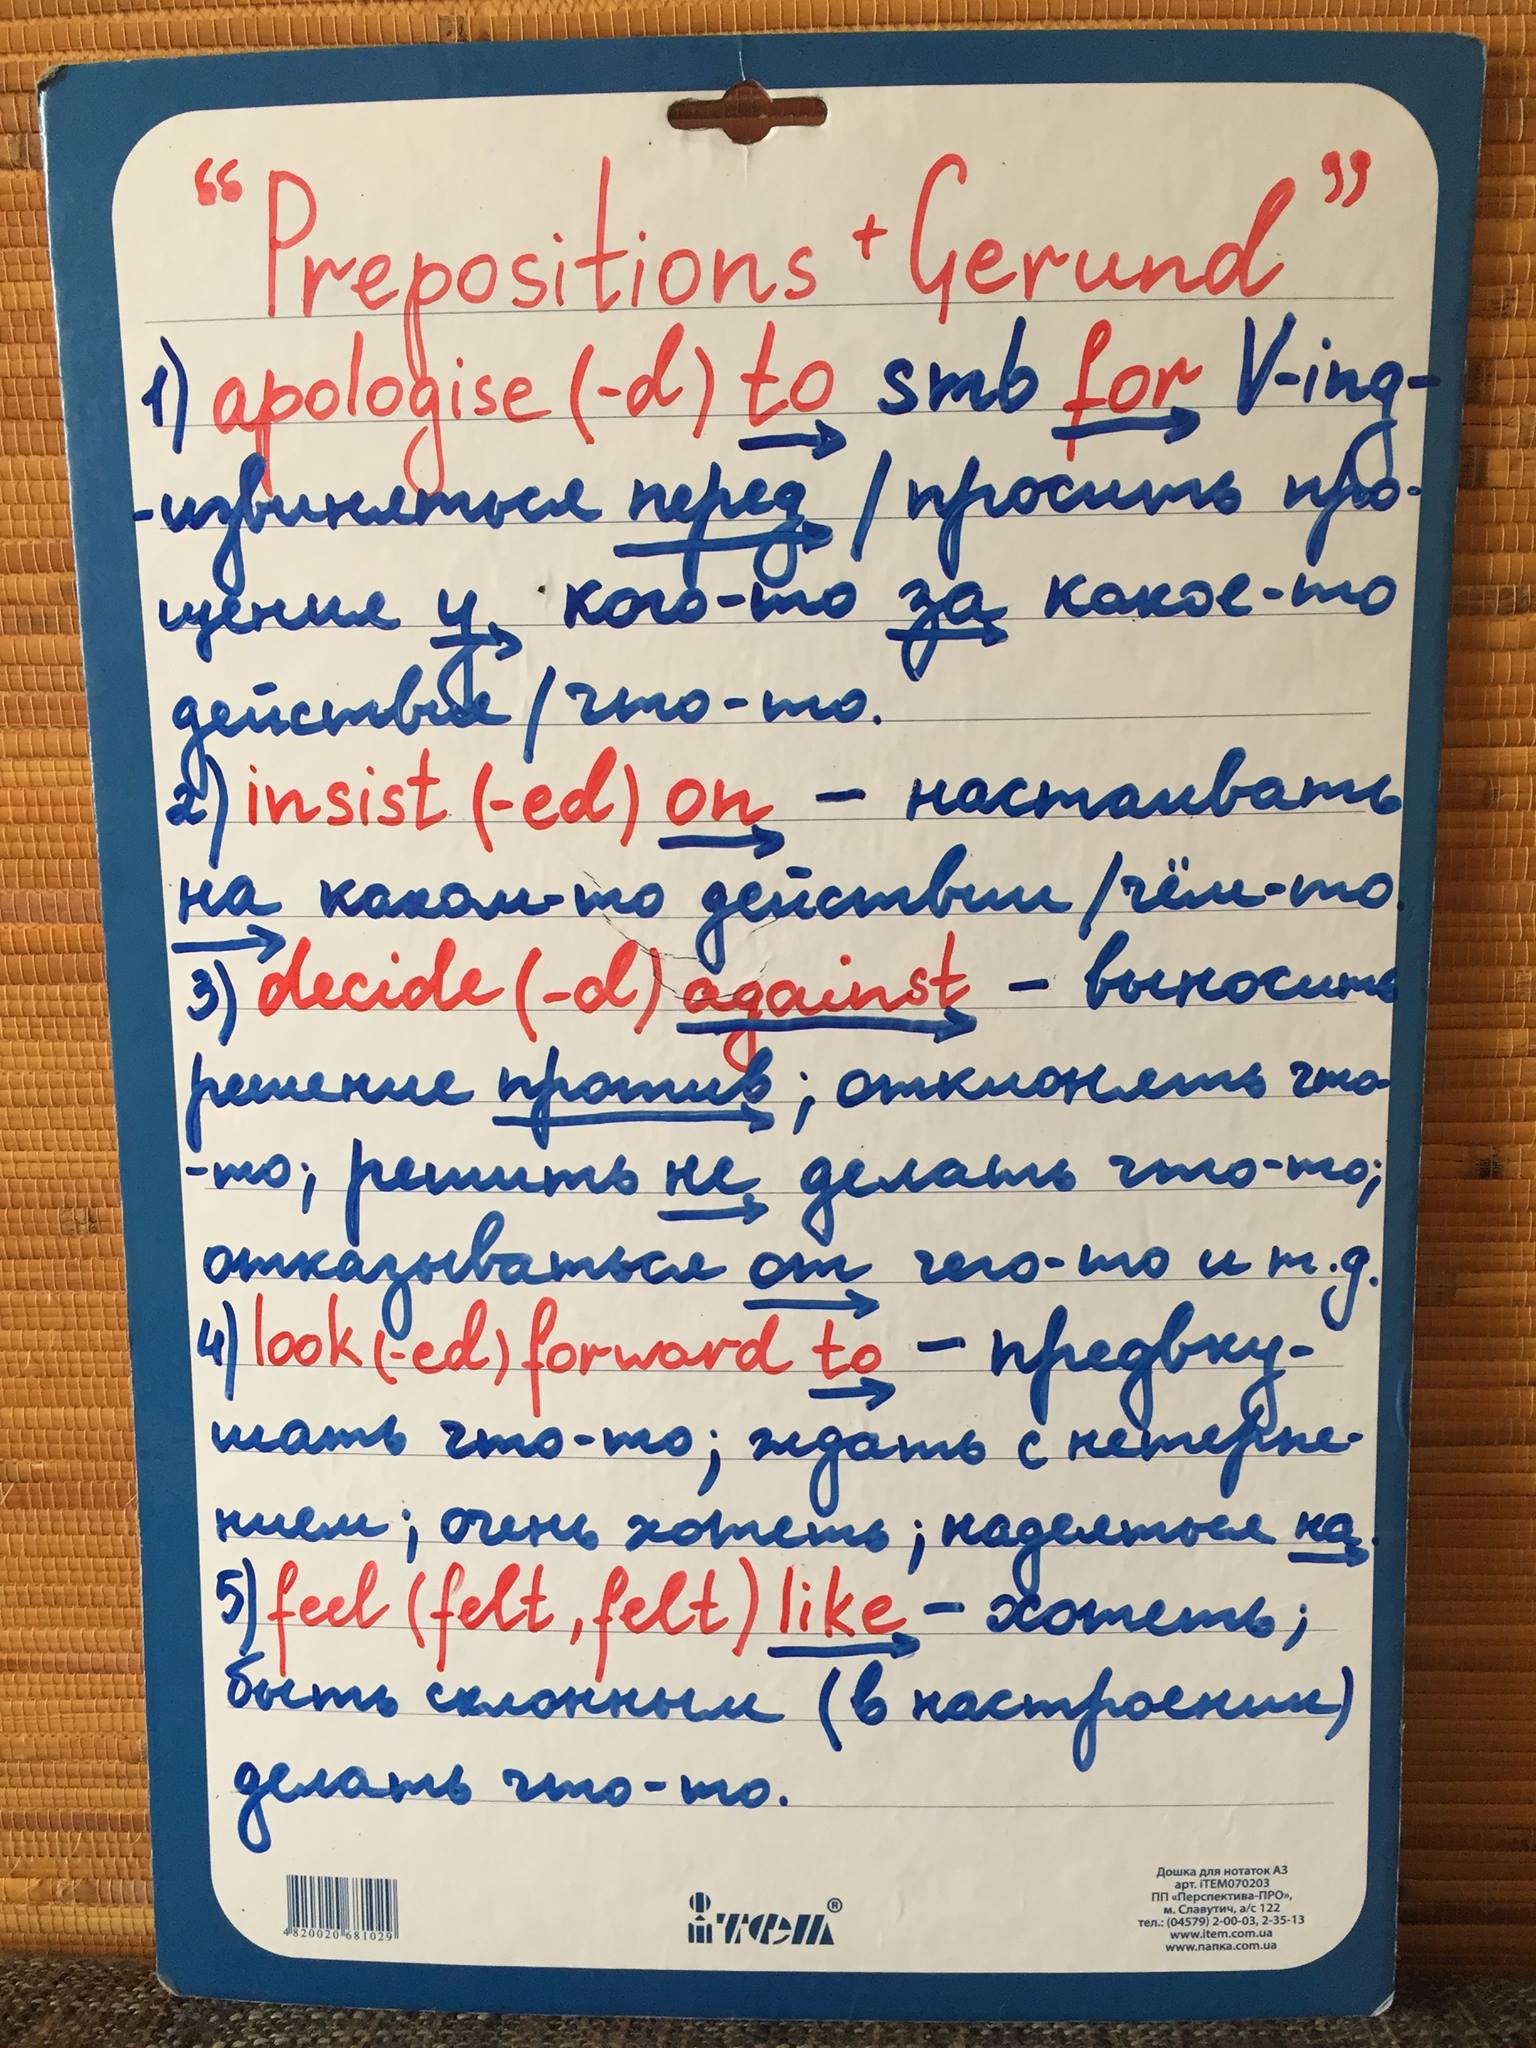 “Prepositions + Gerund”
1) apologise (-d) to smb for V-ing-
-извиняться перед / просить про-
щения у кого-то за какое-то
действие / что-то.
2) insist (-ed) on – настаивать
на каком-то действии / чём-то.
3) decide (-d) against – выносить
решение против; отклонять что-
-то; решить не делать что-то;
отказываться от чего-то и т.д.
4) look (-ed) forward to – предвку-
шать что-то; ждать с нетерпе-
нием; очень хотеть; надеяться на.
5) feel (felt, felt) like – хотеть;
быть склонным (в настроении)
делать что-то.
4 820020 681029
iтем®
Дошка для нотаток А3
арт. iTEM070203
ПП «Перспектива-ПРО»,
м. Славутич, а/с 122
тел.: (04579) 2-00-03, 2-35-13
www.item.com.ua
www.папка.com.ua